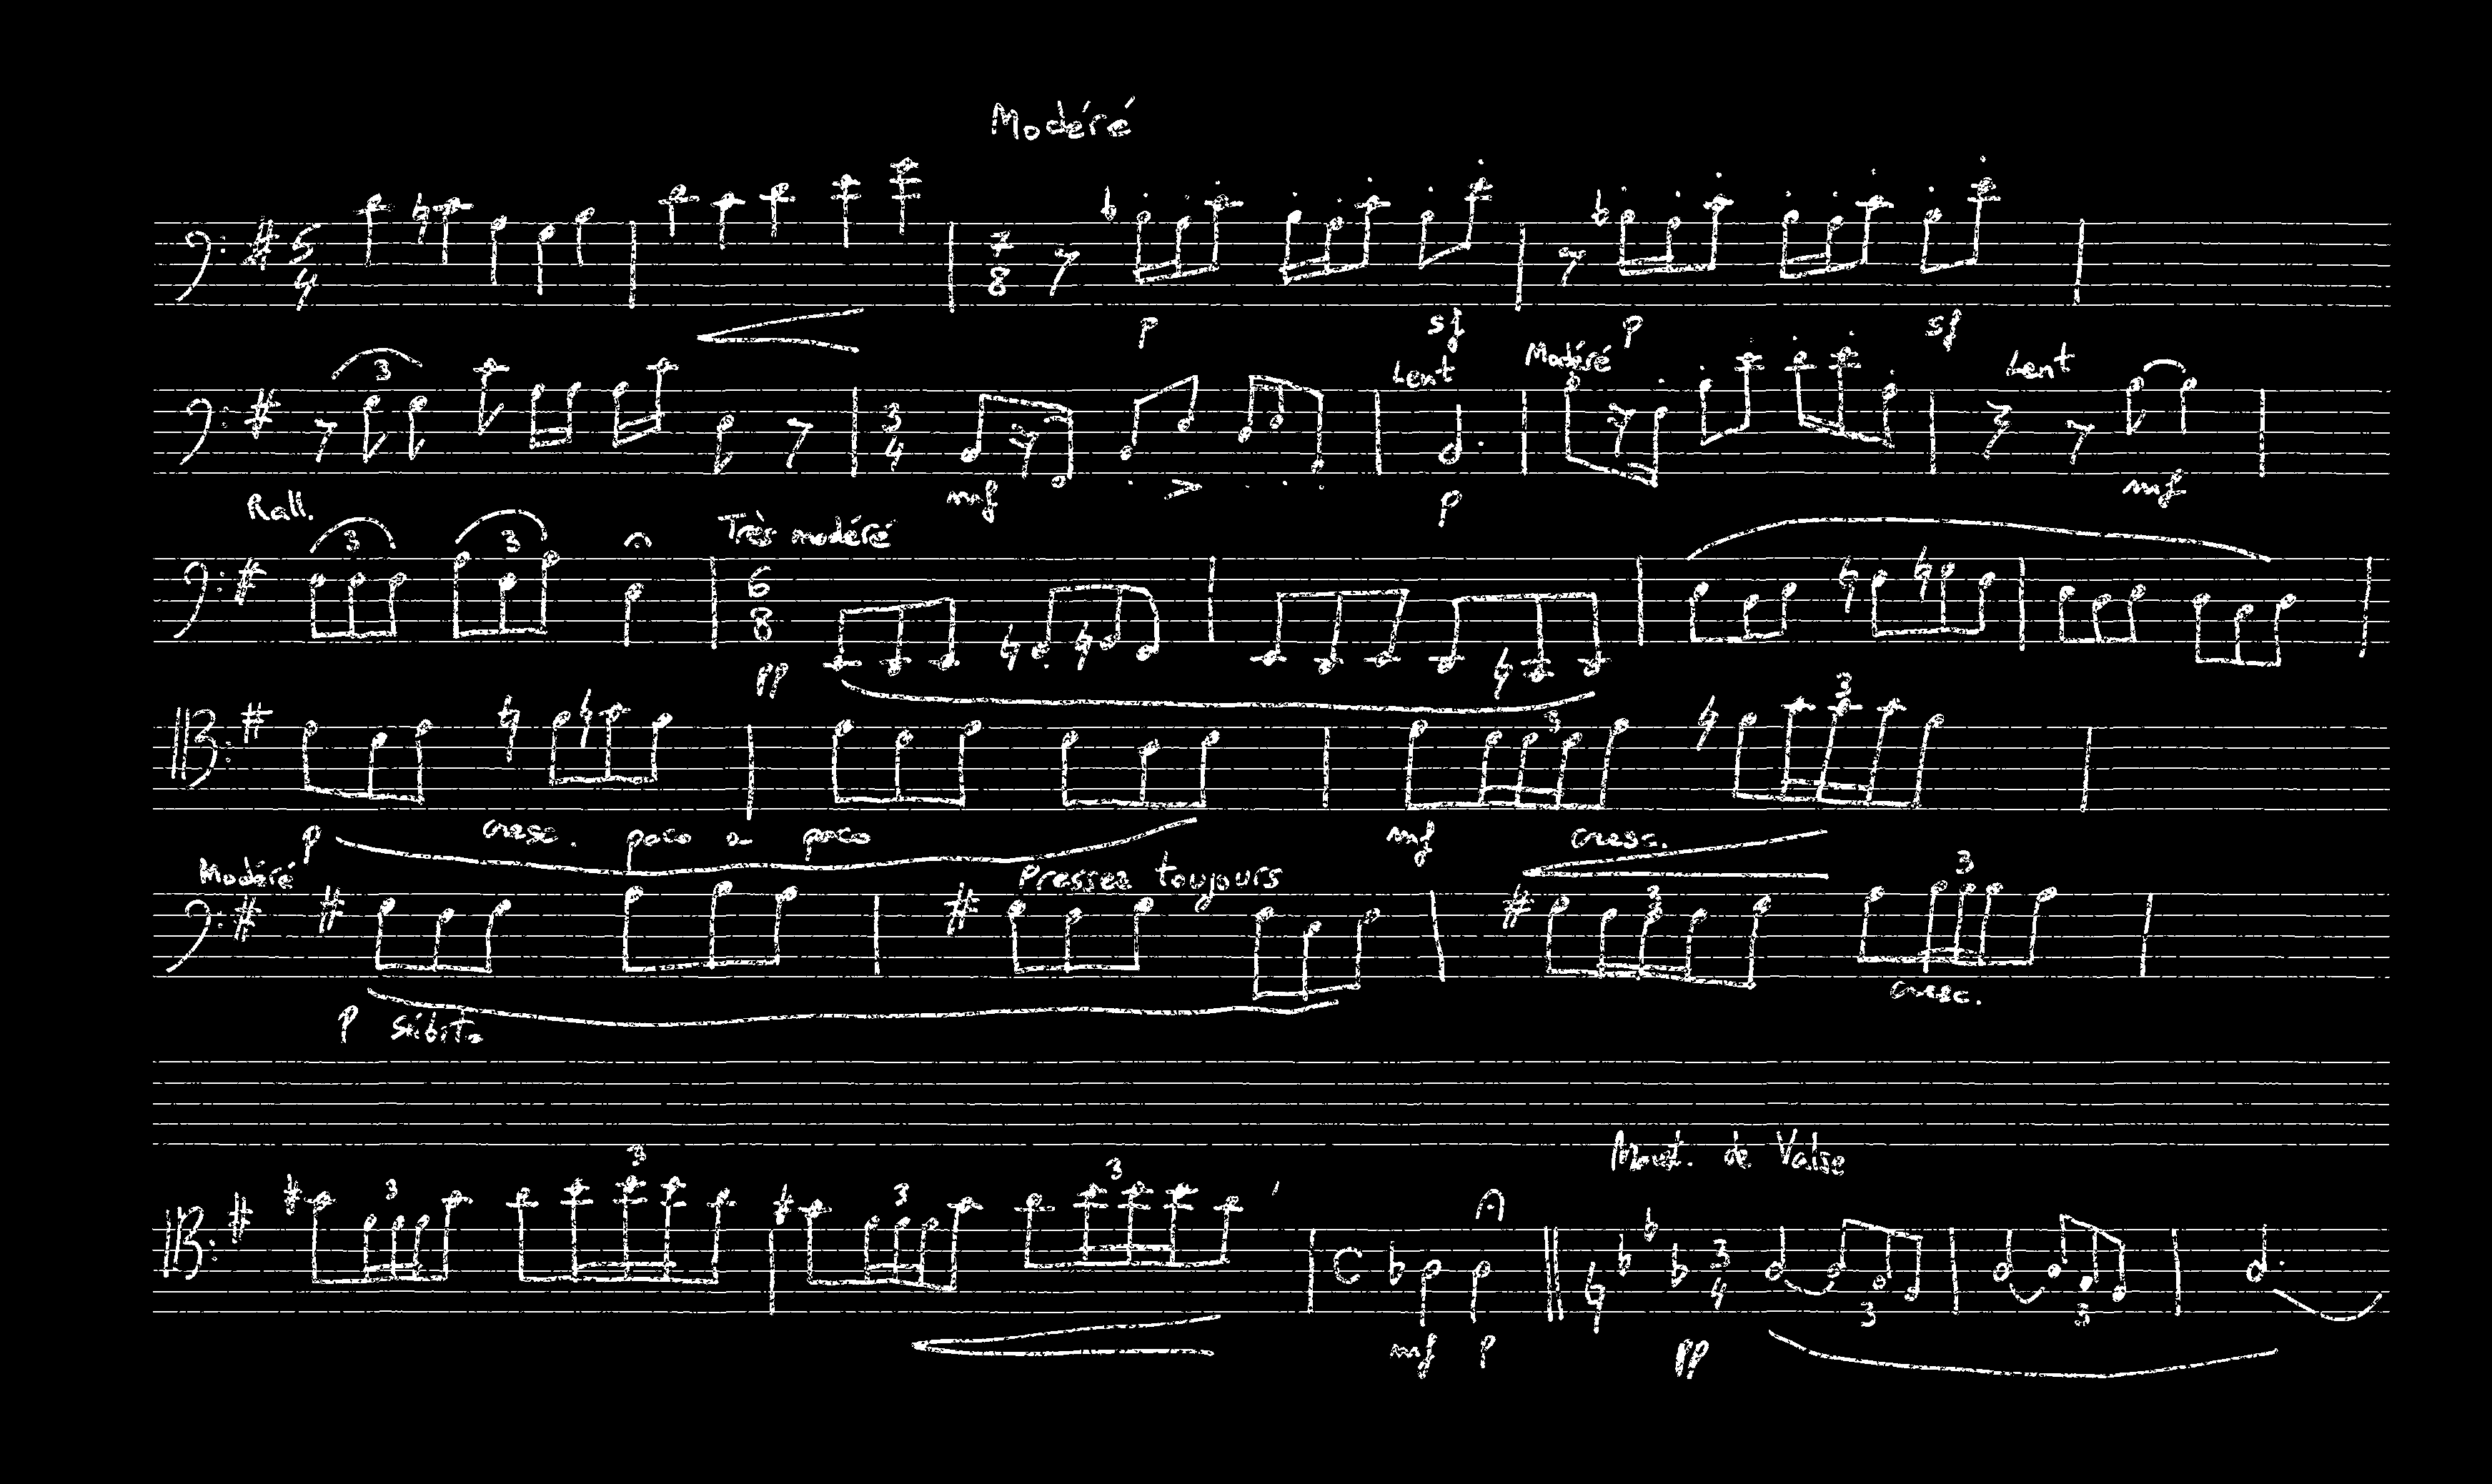 Modéré
5 4 7 8
p sf p sf
3 Lent Modéré Lent
3 4
mf p mf
Rall.
3 3 Très modéré
6 8
pp
3 3
p cresc. poco a poco mf cresc.
Modéré Pressez toujours 3 3
cresc.
p subito
Mouvt. de Valse
3 3 3 3
C 3 4
3 3
mf p pp